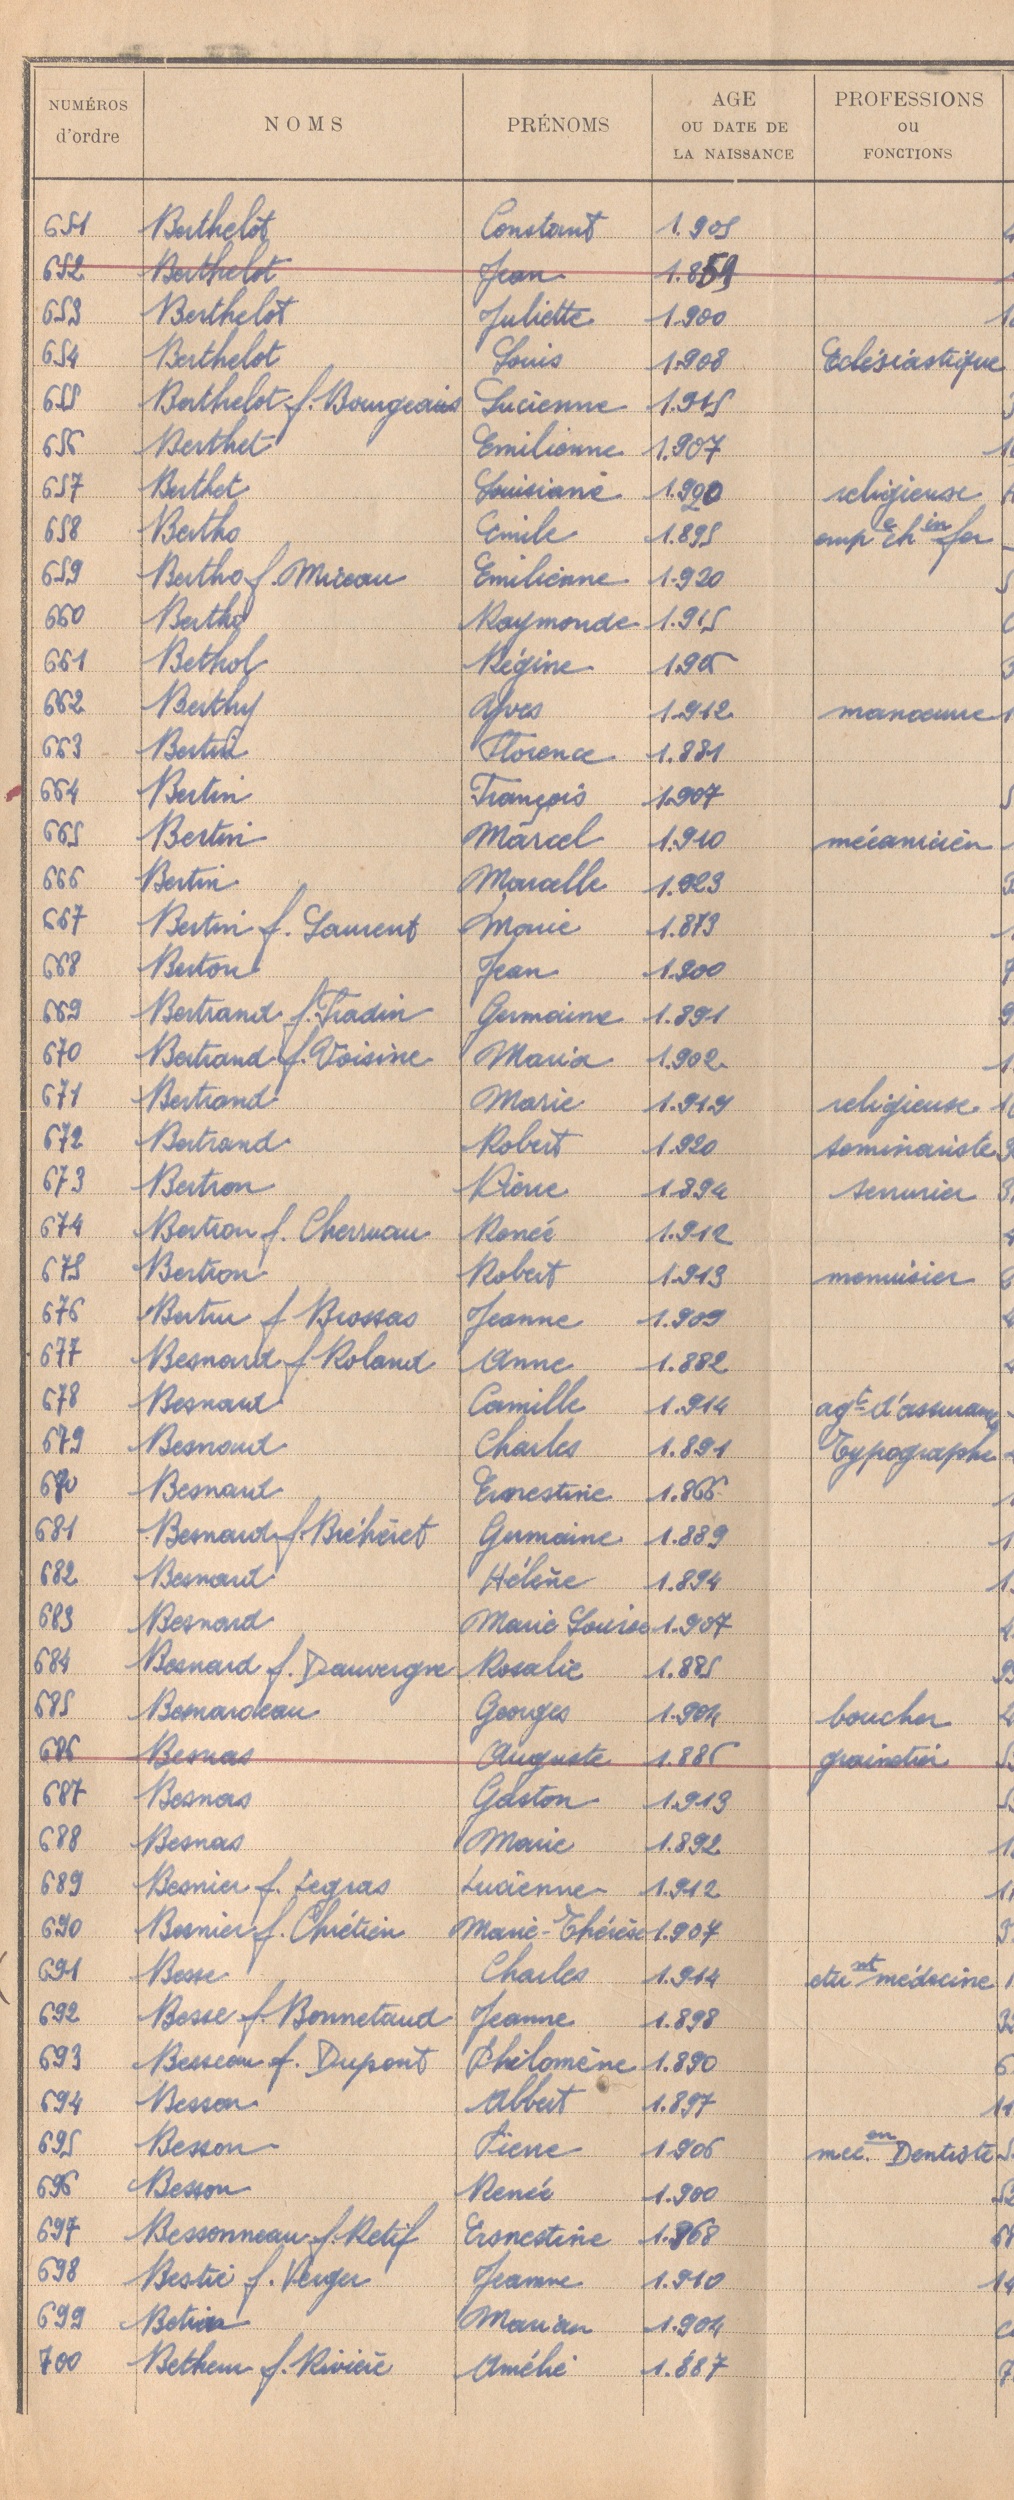 NUMÉROS d'ordre NOMS PRÉNOMS AGE OU DATE DE LA NAISSANCE PROFESSIONS ou FONCTIONS
651 Berthelot Constant 1.905
652 Berthelot Jean 1.859
653 Berthelot Juliette 1.900
654 Berthelot Louis 1.908 Eclésiastique
655 Berthelot f. Bourgeais Lucienne 1.915
656 Berthet Emilienne 1.907
657 Berthet Louisiane 1.920 religieuse
658 Bertho Emile 1.895 emp e ch in fer
659 Bertho f. Miceau Emilienne 1.920
660 Bertho Raymonde 1.915
661 Bethol Régine 1.905
662 Berthy Yves 1.912 manœuvre
663 Bertin Florence 1.881
664 Bertin François 1.907
665 Bertin Marcel 1.910 mécanicien
666 Bertin Marcelle 1.923
667 Bertin f. Laurent Marie 1.873
668 Berton Jean 1.900
669 Bertrand f. Fradin Germaine 1.891
670 Bertrand f. Voisine Maria 1.902
671 Bertrand Marie 1.919 religieuse
672 Bertrand Robert 1.920 seminariste
673 Bertron Pierre 1.894 serrurier
674 Bertron f. Cherruau Renée 1.912
675 Bertron Robert 1.913 menuisier
676 Bertru f Brossas Jeanne 1.909
677 Besnard f Roland Anne 1.882
678 Besnard Camille 1.914 agt d'assurances
679 Besnard Charles 1.891 Typographe
680 Besnard Ernestine 1.866
681 Besnard f. Bréhéret Germaine 1.889
682 Besnard Hélène 1.894
683 Besnard Marie Louise 1.907
684 Besnard f. Dauvergne Rosalie 1.885
685 Besnardeau Georges 1.904 boucher
686 Besnas Auguste 1.886 grainetier
687 Besnas Gaston 1.913
688 Besnas Marie 1.892
689 Besnier f. Legras Lucienne 1.912
690 Besnier f. Chrétien Marie-Thérèse 1.907
691 Besse Charles 1.914 etu nt médecine
692 Besse f. Bonnetaud Jeanne 1.898
693 Besseau f. Dupont Philomène 1.890
694 Besson Albert 1.897
695 Besson Pierre 1.906 mec. en Dentiste
696 Besson Renée 1.900
697 Bessonneau f. Retif Ernestine 1.868
698 Bestié f. Verger Jeanne 1.910
699 Marian 1.904
700 Betheur f. Rivière Amélie 1.887